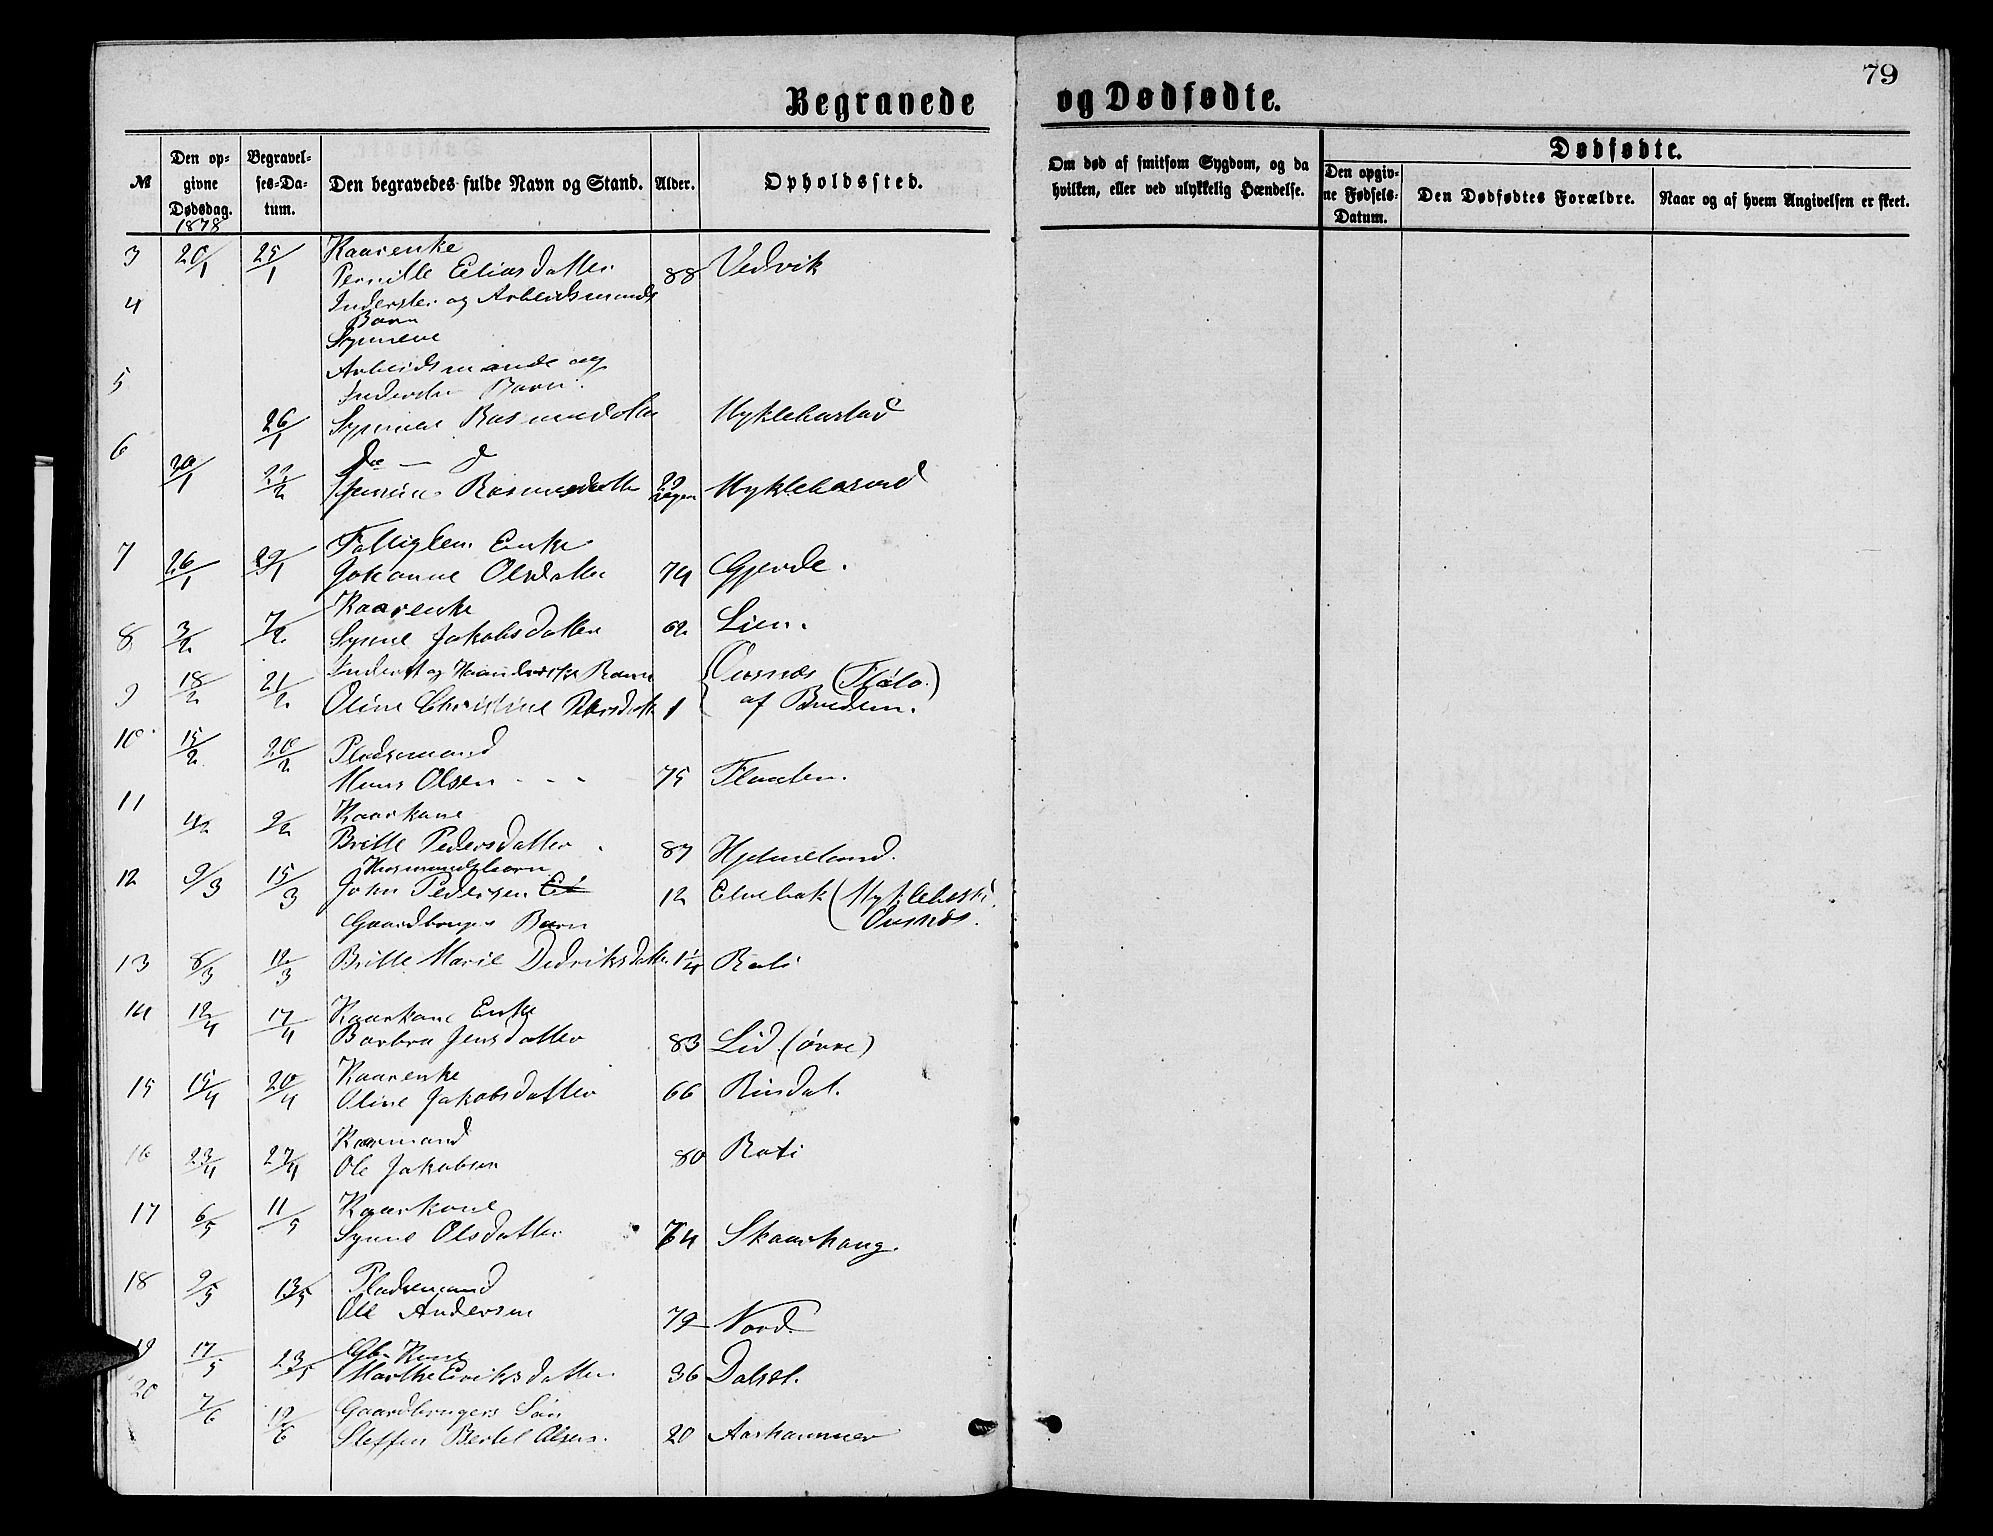 79
Begravede og Dødfødte.
№
Den opgivne Dødsdag.
Begravelses-Datum.
Den begravedes fulde Navn og Stand.
Alder.
Opholdssted.
Om død af smitsom Sygdom, og da hvilken, eller ved ulykkelig Hændelse.
Dødfødte.
Den opgivne Fødsels-Datum.
Den Dødfødtes Forældre.
Naar og af hvem Angivelsen er skeet.
1878
3 20/1 25/1 Kaarenke
Pernille Eliasdatter 88 Vedvik
4 Inderster og Arbeidsmands
Barn
Synneve
5 Arbeidsmands og
Inderster Barn
26/1 Synneve Rasmusdatter Myklebustad
6 Do — d
30/1 22/2 Rasmusdatter 29 Myklebustad
7 Fattiglem Enke
26/1 29/1 Johanne Olsdatter 74 Gjerde.
Kaarenke
8 3/2 7/2 Synne Jakobsdatter 62 Lien.
Inderst og Haandverks Barn
9 18/2 21/2 Oline Christine Petersdatter 1 Ousnæs (Flølo.)
af Bredem.
10 15/2 20/2 Pladsemand
Mons Olsen - - - 75 Flaaten.
11 4/2 9/2 Kaarkone
Britte Pedersdatter 87 Hjelmeland.
Husmandsbarn
12 9/3 15/3 John Pedersen 12 Elvebak (Myklebust
Ousnæs.
Gaardbruger Barn
13 8/3 12/3 Britte Marie Dedriksdatter 1¼ Roti
14 12/4 17/4 Kaarkone Enke
Barbra Jensdatter 83 Lid (øvre)
15 15/4 20/4 Kaarenke
Oline Jakobsdatter 66 Rindal.
16 23/4 27/4 Kaarmand
Ole Jakobsen 80 Roti
17 6/5 11/5 Kaarkone
Synne Olsdatter 64 Skaarhaug.
18 9/5 13/5 Pladsemand
Ole Andersen 79 Nord
19 17/5 23/5 Gb. Kone
Marthe Eriksdatter 36 Dalset.
20 7/6 12/6 Gaardbrugers Søn
Steffen Bertel Olsen. 20 Aarhammer